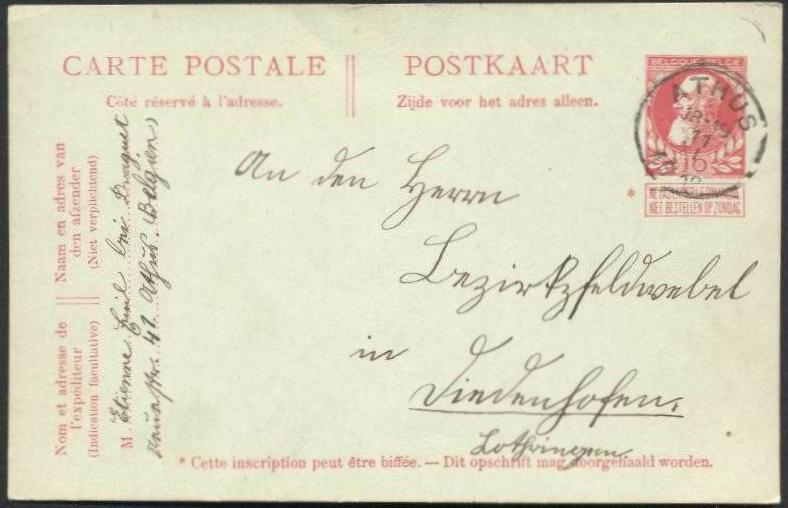 CARTE POSTALE
Côté réservé à l'adresse.
POSTKAART
Zijde voor het adres alleen.
BELGIQUE BELGIË
ATHUS
10
NE PAS LIVRER LE DIMANCHE
NIET BESTELLEN OP ZONDAG
*
An den Herrn
Bezirksfeldwebel
in
Diedenhofen.
Lothringen.
Naam en adres van
den afzender
(Niet verplichtend)
Nom et adresse de
l'expéditeur
(Indication facultative)
M. Etienne Emil bei Draguet
41. Athus. (Belgien)
* Cette inscription peut être biffée. — Dit opschrift mag doorgehaald worden.